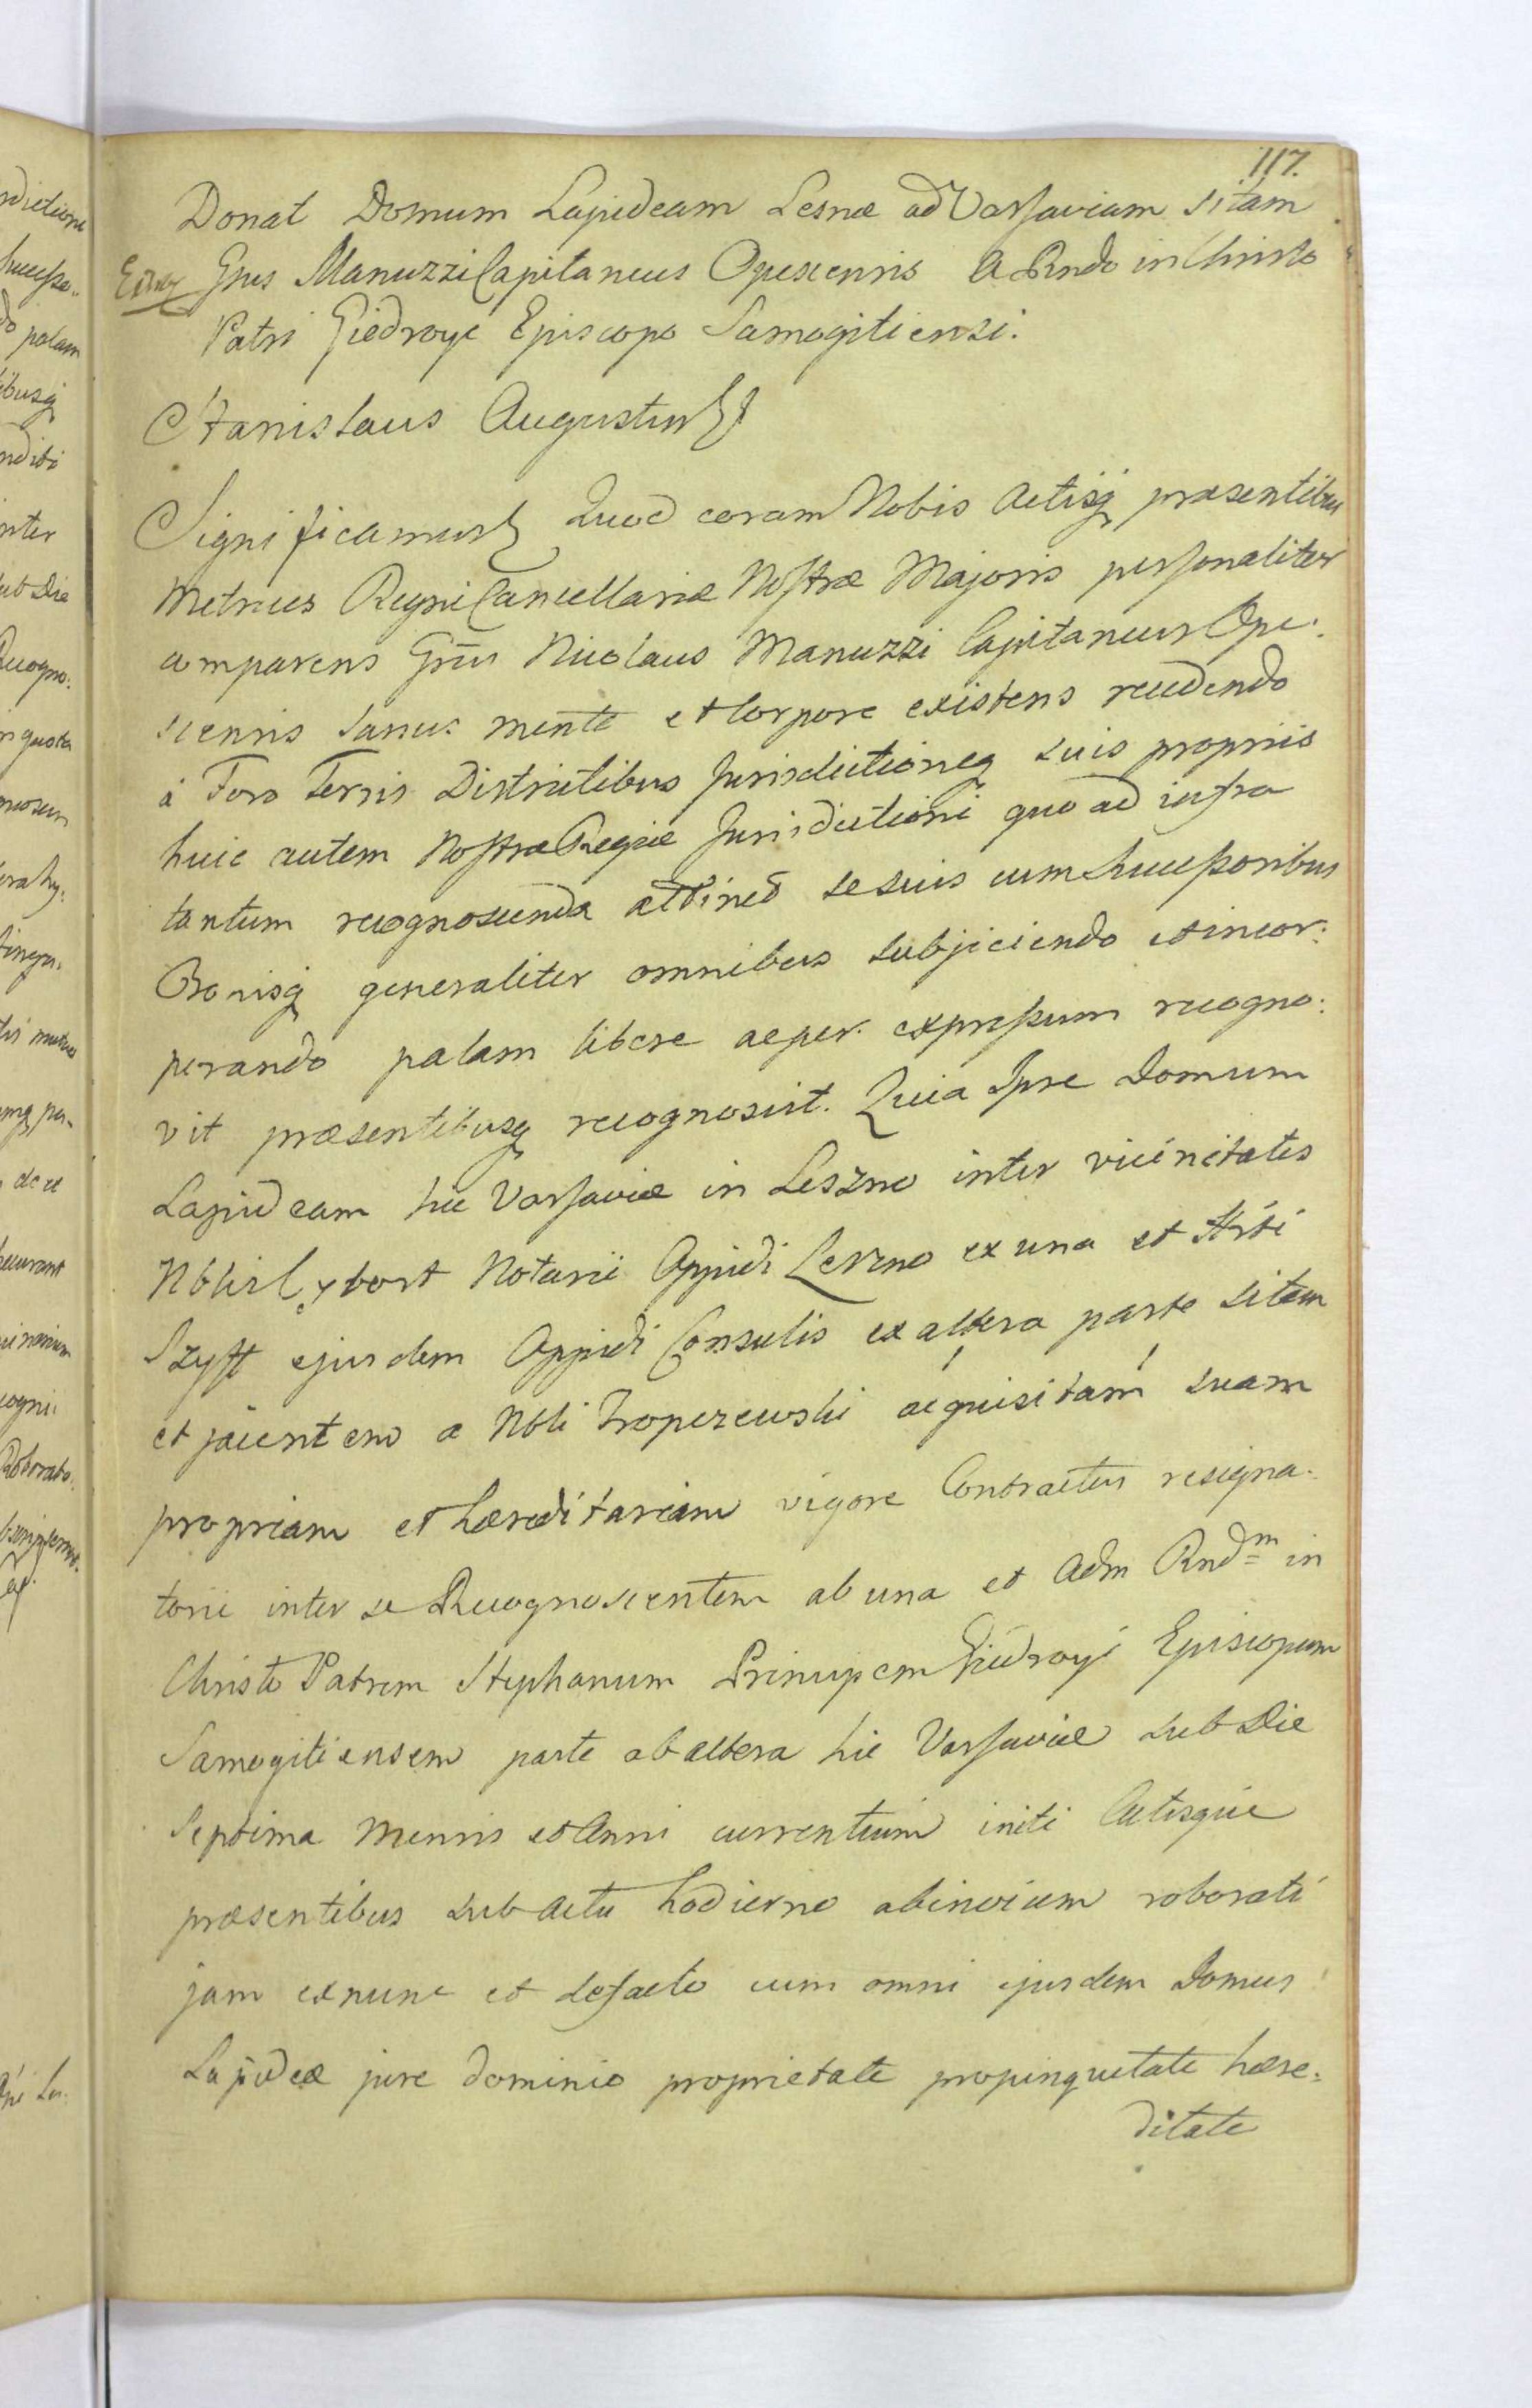 117.
Donat Domum Lapideam Lesnæ ad Varsaviam sitam
Gnus Manuzzi Capitaneus Opescensis A Rndo in Christo
Patri Giedroyc Episcopo Samogitiensi.
Stanislaus Augustus
Significamus Quod coram Nobis Actisq præsentibus
Metrices Regni Cancellariæ Nostræ Majoris personaliter
comparens Gnus Nicolaus Manuzzi Capitaneus Ope:
scensis sanus mente et Corpore existens recedendo
à Foro Terris Districtibus Jurisdictioneq suis propriis
huic autem Nostræ Regiæ Jurisdictioni quo ad infra
tantum recognoscenda attinet se suis cum Successoribus
Bonisq generaliter omnibus subjiciendo et incor:
perando palam libere ac per expressum recogno:
vit præsentibusq recognoscit. Quia Ipse Domum
Lapideam hic Varsaviæ in Leszno inter vicinitates
Nobil Notarii Oppidi Leszno ex una et
Szyft ejusdem Oppidi Consulis ex altera parte sitam
et jacentem a Nbli Tropczewski acquisitam suam
propriam et hæreditariam vigore Contractus resigna:
torii inter se Recognoscentem ab una et Adm Rndm in
Christo Patrem Stephanum Principem Giedroyć Episcopum
Samogitiensem parte ab altera hic Varsaviæ sub Die
Septima Mensis et Anni currentium initi Actisque
præsentibus sub actu hodierno abinvicem roborati
jam ex nunc et de facto cum omni ejusdem Domus
Lapideæ jure dominio proprietate propinquitate hære:
ditate